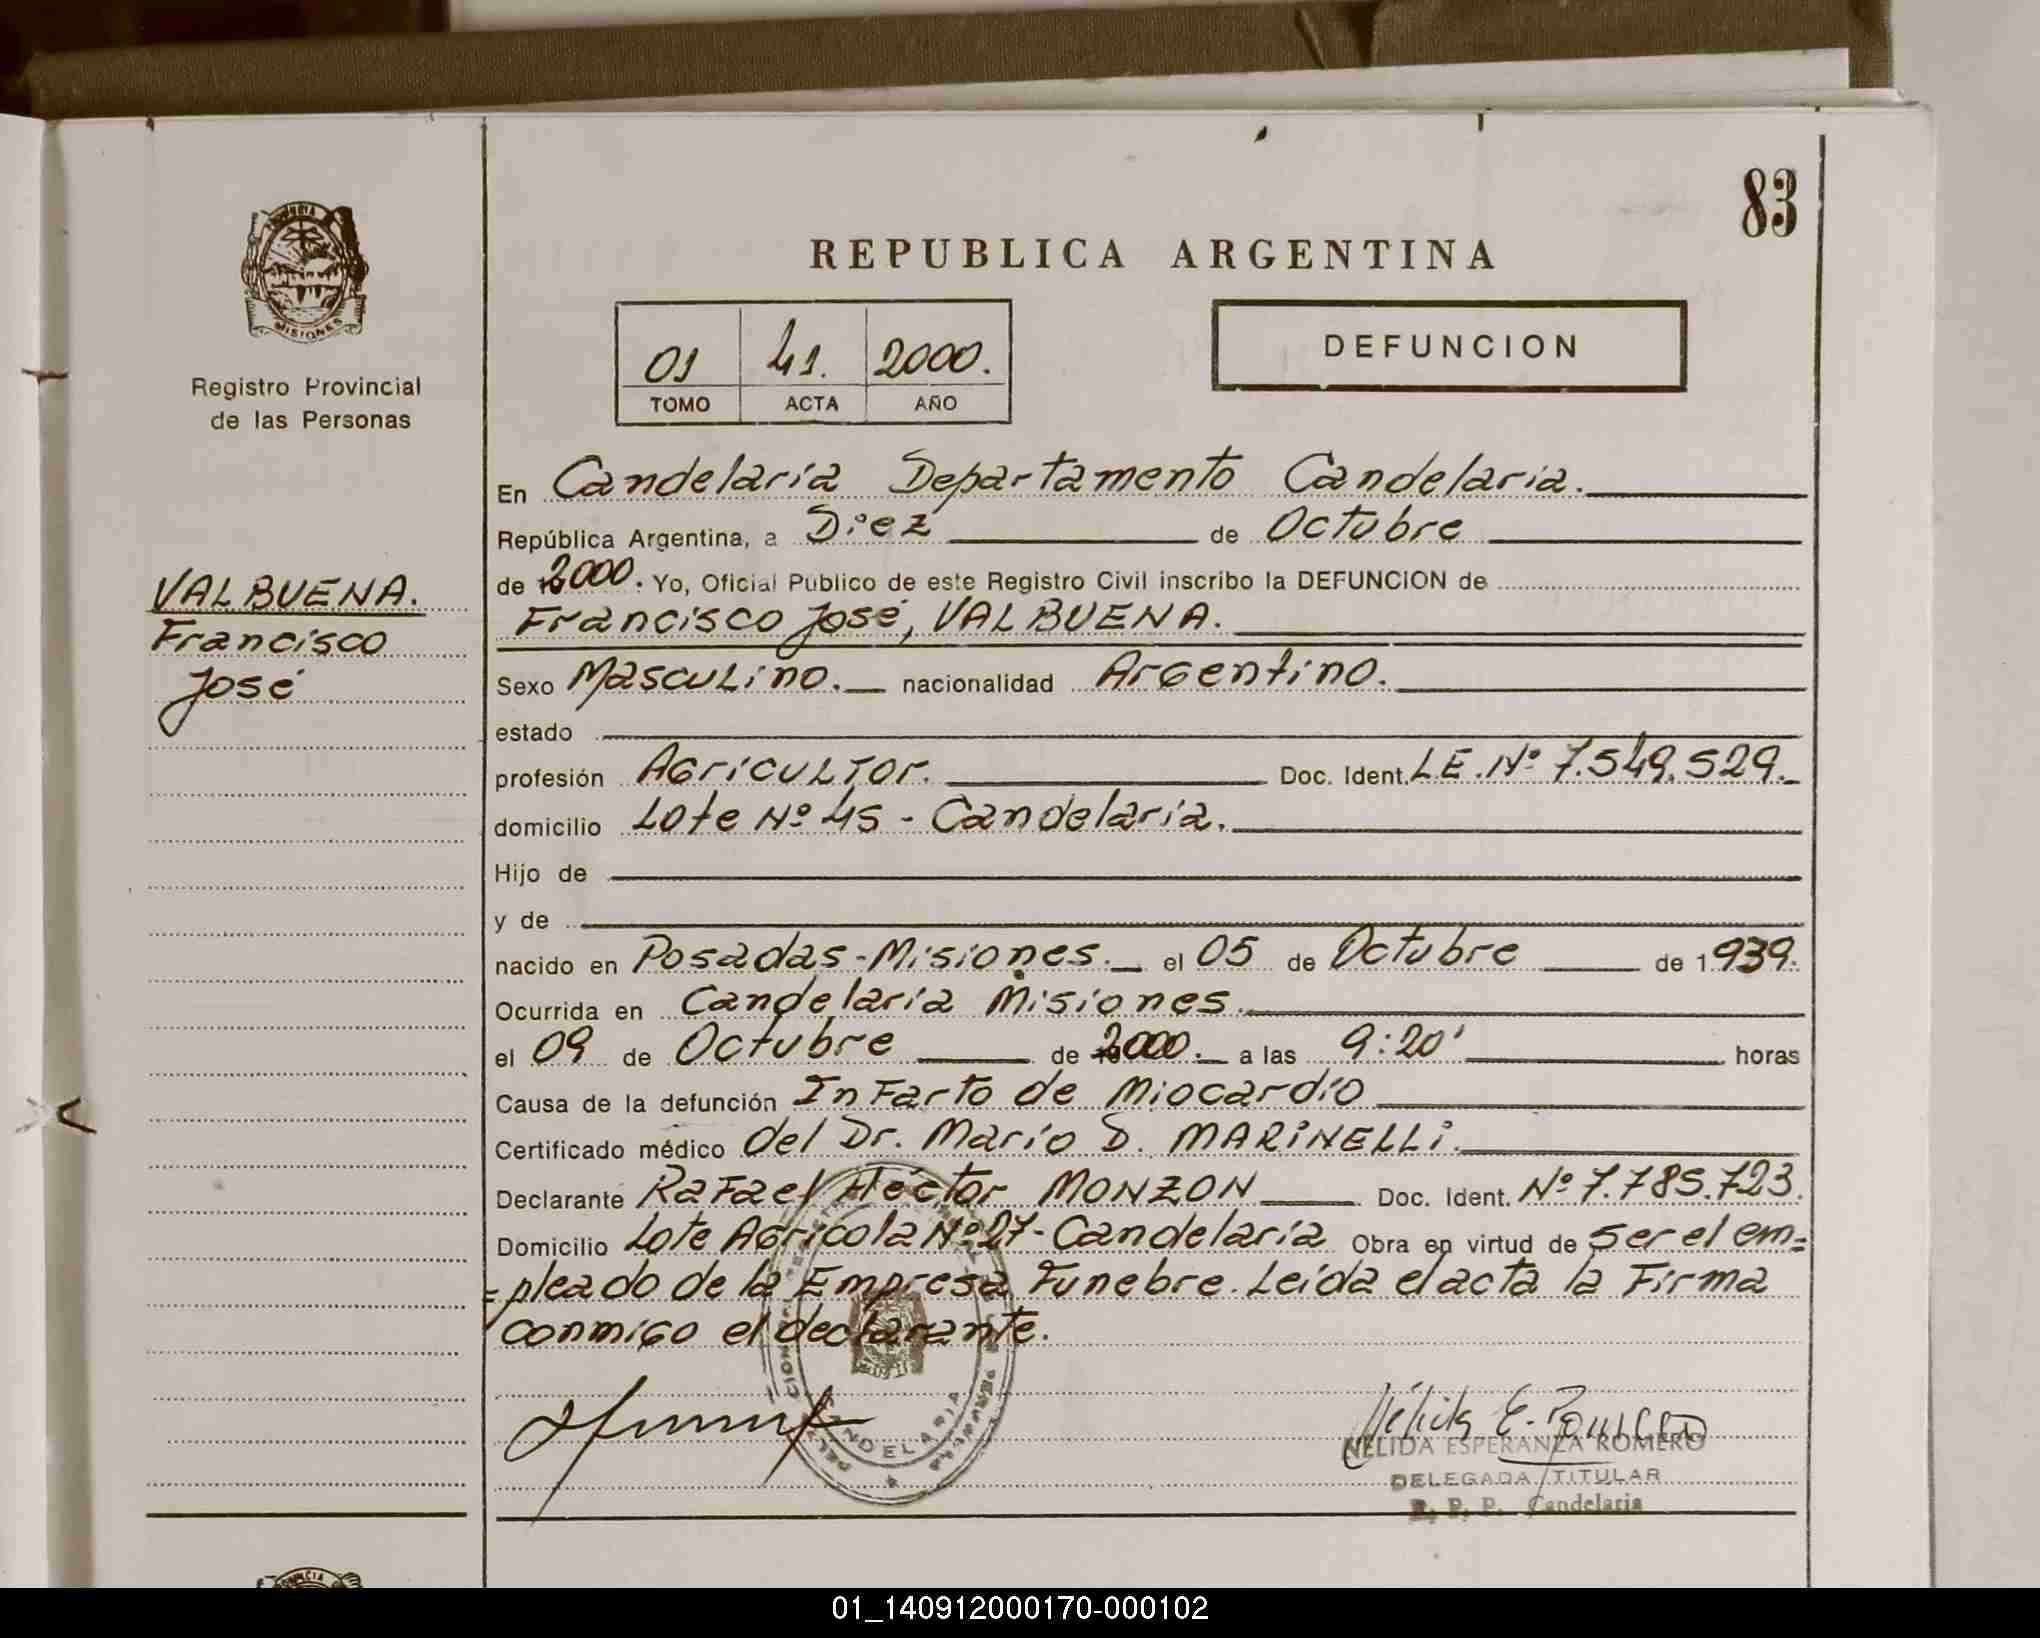 83
REPUBLICA ARGENTINA
MISIONES
Registro Provincial
de las Personas
01 41. 2000.
TOMO ACTA AÑO
DEFUNCION
VALBUENA.
Francisco
José
En Candelaria Departamento Candelaria.
República Argentina, a Diez de Octubre
de 2000. Yo, Oficial Publico de este Registro Civil inscribo la DEFUNCION de
Francisco José, VALBUENA.
Sexo Masculino. nacionalidad Argentino.
estado
profesión Agricultor. Doc. Ident. L.E. Nº 7.549.529.
domicilio Lote Nº 45 - Candelaria.
Hijo de
y de
nacido en Posadas-Misiones. el 05 de Octubre de 1939.
Ocurrida en Candelaria Misiones.
el 09 de Octubre de 2000. a las 9:20' horas
Causa de la defunción Infarto de Miocardio
Certificado médico del Dr. Mario D. MARINELLI.
Declarante Rafael Héctor MONZON Doc. Ident. Nº 7.785.723.
Domicilio Lote Agricola Nº 27- Candelaria Obra en virtud de ser el em=
=pleado de la Empresa Funebre. Leida el acta la Firma
conmigo el declarante.
CANDELARIA
Nélida E. Romero
NELIDA ESPERANZA ROMERO
DELEGADA TITULAR
R. P. P. Candelaria
01_140912000170-000102